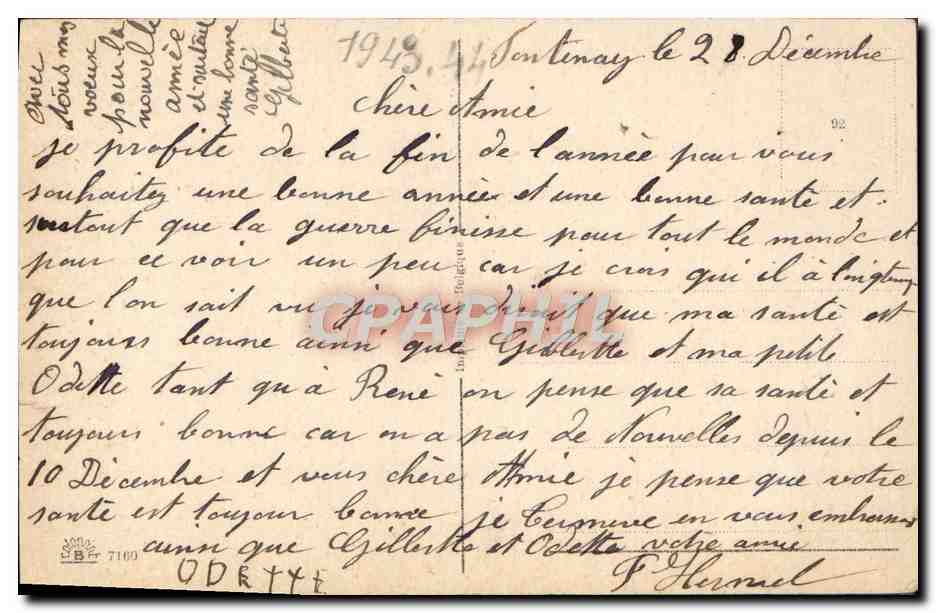 1943.44 Fontenay le 28 Décembre
chère Amie
92
je profite de la fin de l'année pour vous
souhaitez une bonne année et une bonne santé et
surtout que la guerre finisse pour tout le monde et
pour ce voir un peu car je crois qui il à longtemps
que l'on sait vu je vous dirait que ma santé est
toujours bonne ainsi que Gilbertte et ma petite
Odette tant qu'à René on pense que sa santé et
toujours bonne car on a pas de Nouvelles depuis le
10 Décembre et vous chère Amie je pense que votre
santé est toujour bonne je termine en vous embrassant
ainsi que Gilbertte et Odette votre amie
F
ODETTE
avec
tous mes
voeux
pour la
nouvelle
année
et surtout
une bonne
santé
Gilberte
Belgique
B
7160
CPAPHIL